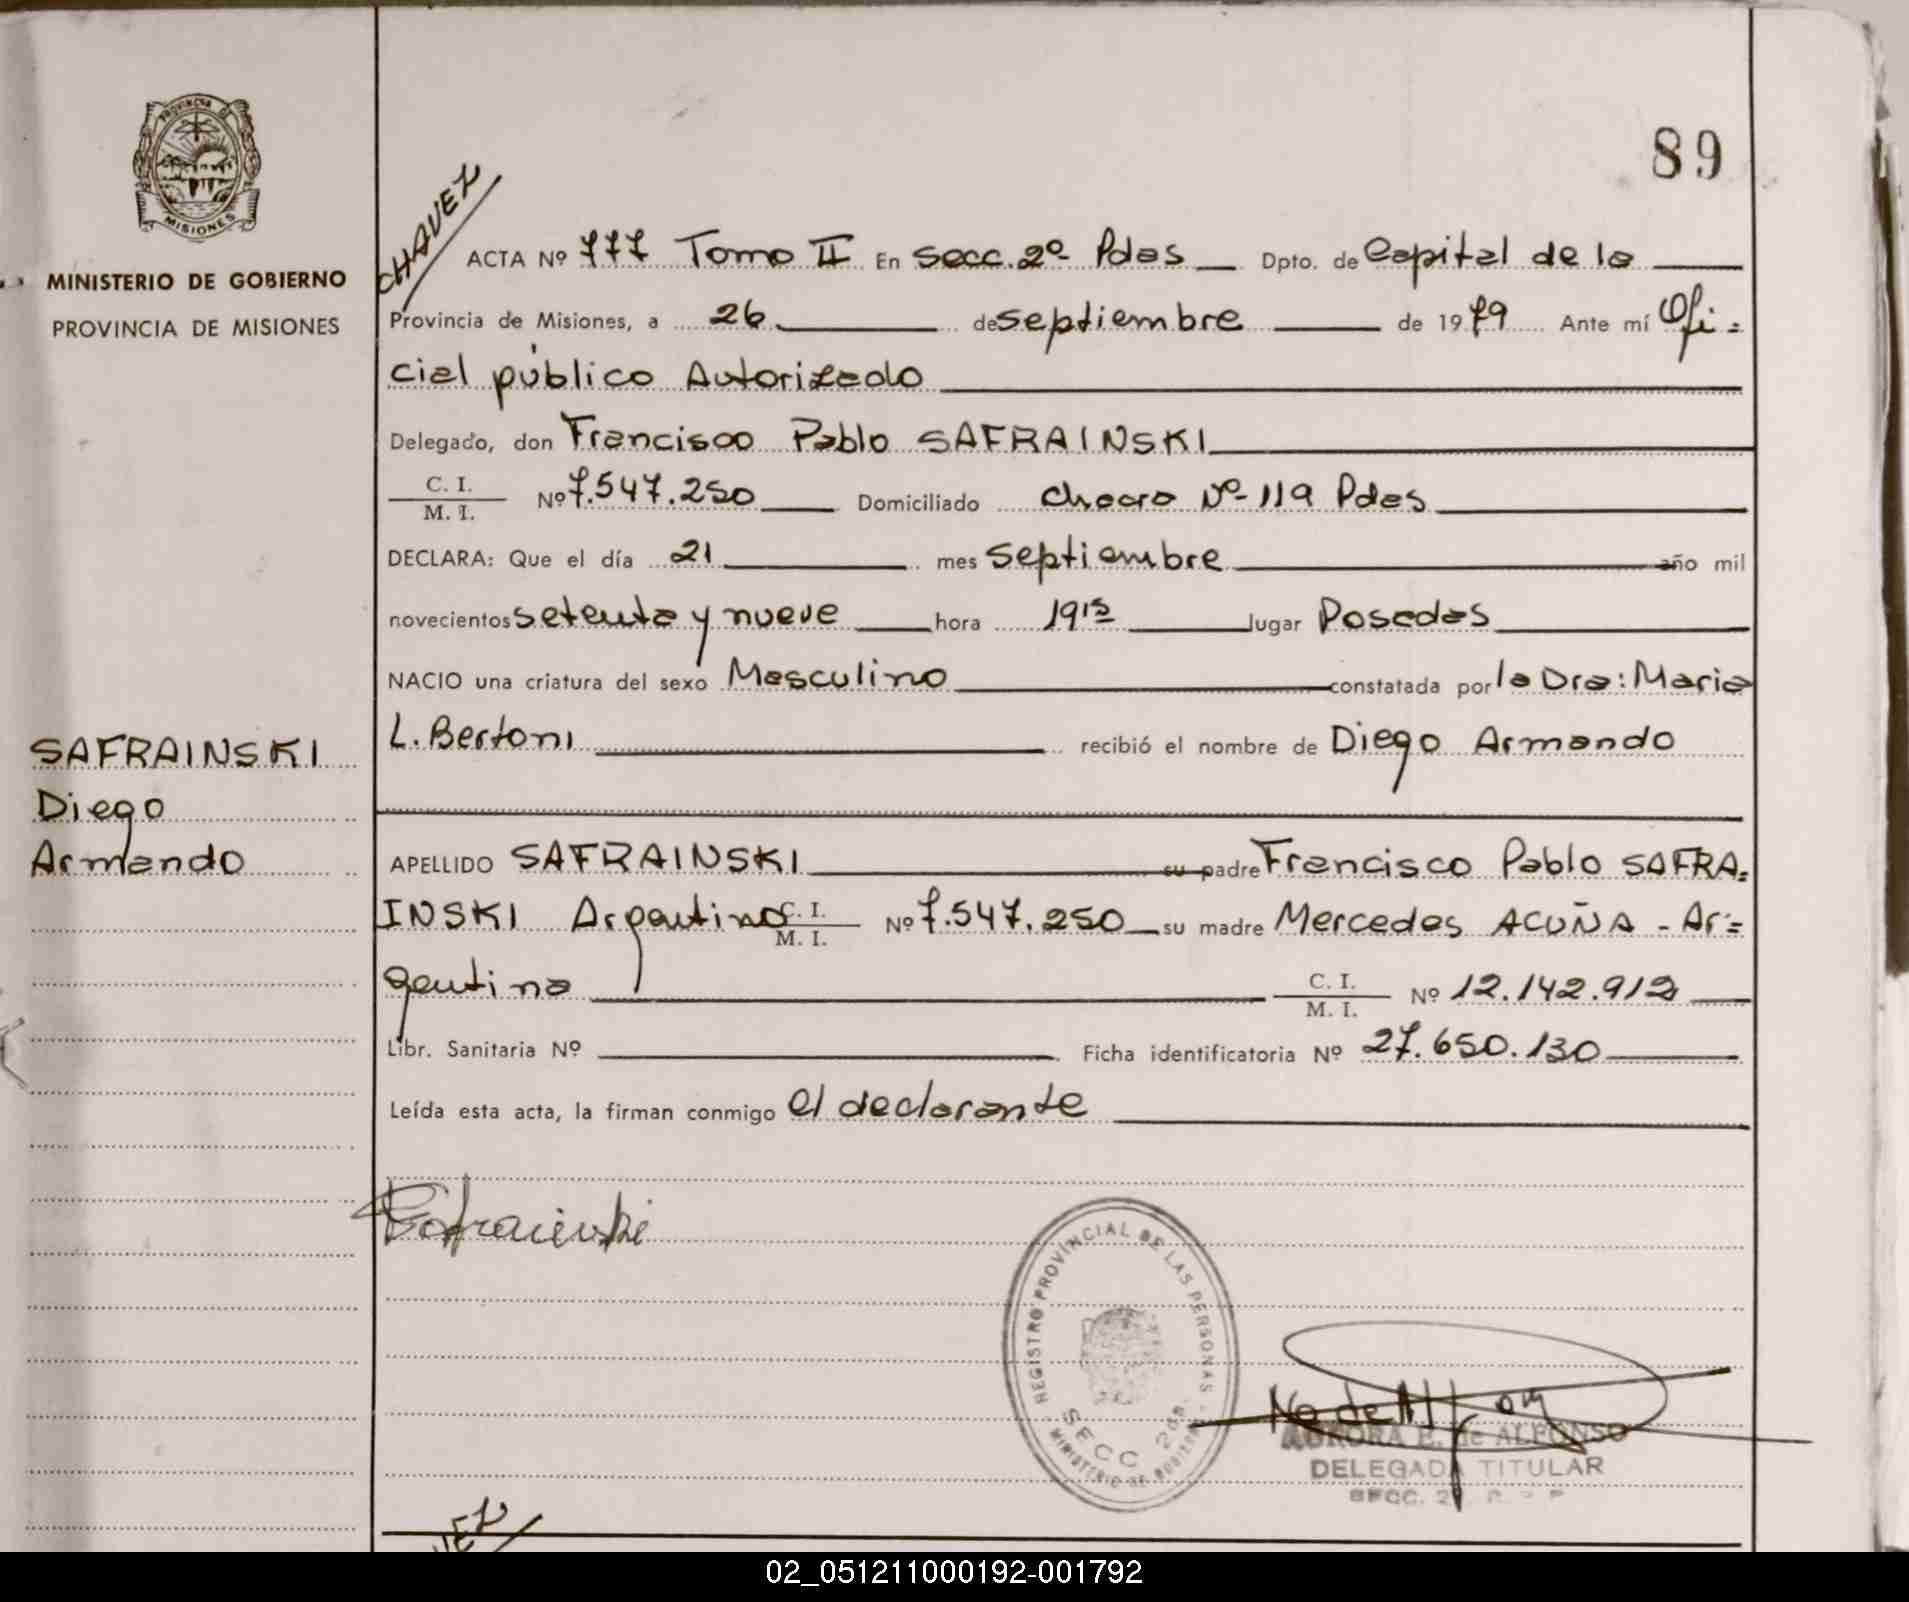 PROVINCIA DE
MISIONES
MINISTERIO DE GOBIERNO
PROVINCIA DE MISIONES
SAFRAINSKI
Diego
Armando
89
CHAVEZ
ACTA Nº 777 Tomo II En Secc. 2º Pdas Dpto. de Capital de la
Provincia de Misiones, a 26 de septiembre de 1979 Ante mí Ofi=
cial público Autorizado
Delegado, don Francisco Pablo SAFRAINSKI
C. I. / M. I. Nº 7.547.250 Domiciliado chacra Nº 119 Pdas
DECLARA: Que el día 21 mes septiembre año mil
novecientos setenta y nueve hora 19 15 lugar Posadas
NACIO una criatura del sexo Masculino constatada por la Dra: Maria
L. Bertoni recibió el nombre de Diego Armando
APELLIDO SAFRAINSKI su padre Francisco Pablo SAFRA=
INSKI Argentino C. I. / M. I. Nº 7.547.250 su madre Mercedes ACUÑA - Ar=
gentina C. I. / M. I. Nº 12.142.912
Libr. Sanitaria Nº Ficha identificatoria Nº 27.650.130
Leída esta acta, la firman conmigo el declarante
Safrainski
REGISTRO PROVINCIAL DE LAS PERSONAS
SECC 2da.
MINISTERIO DE GOBIERNO
AURORA E. de ALFONSO
DELEGADA TITULAR
SECC. 2
VEZ
02_051211000192-001792